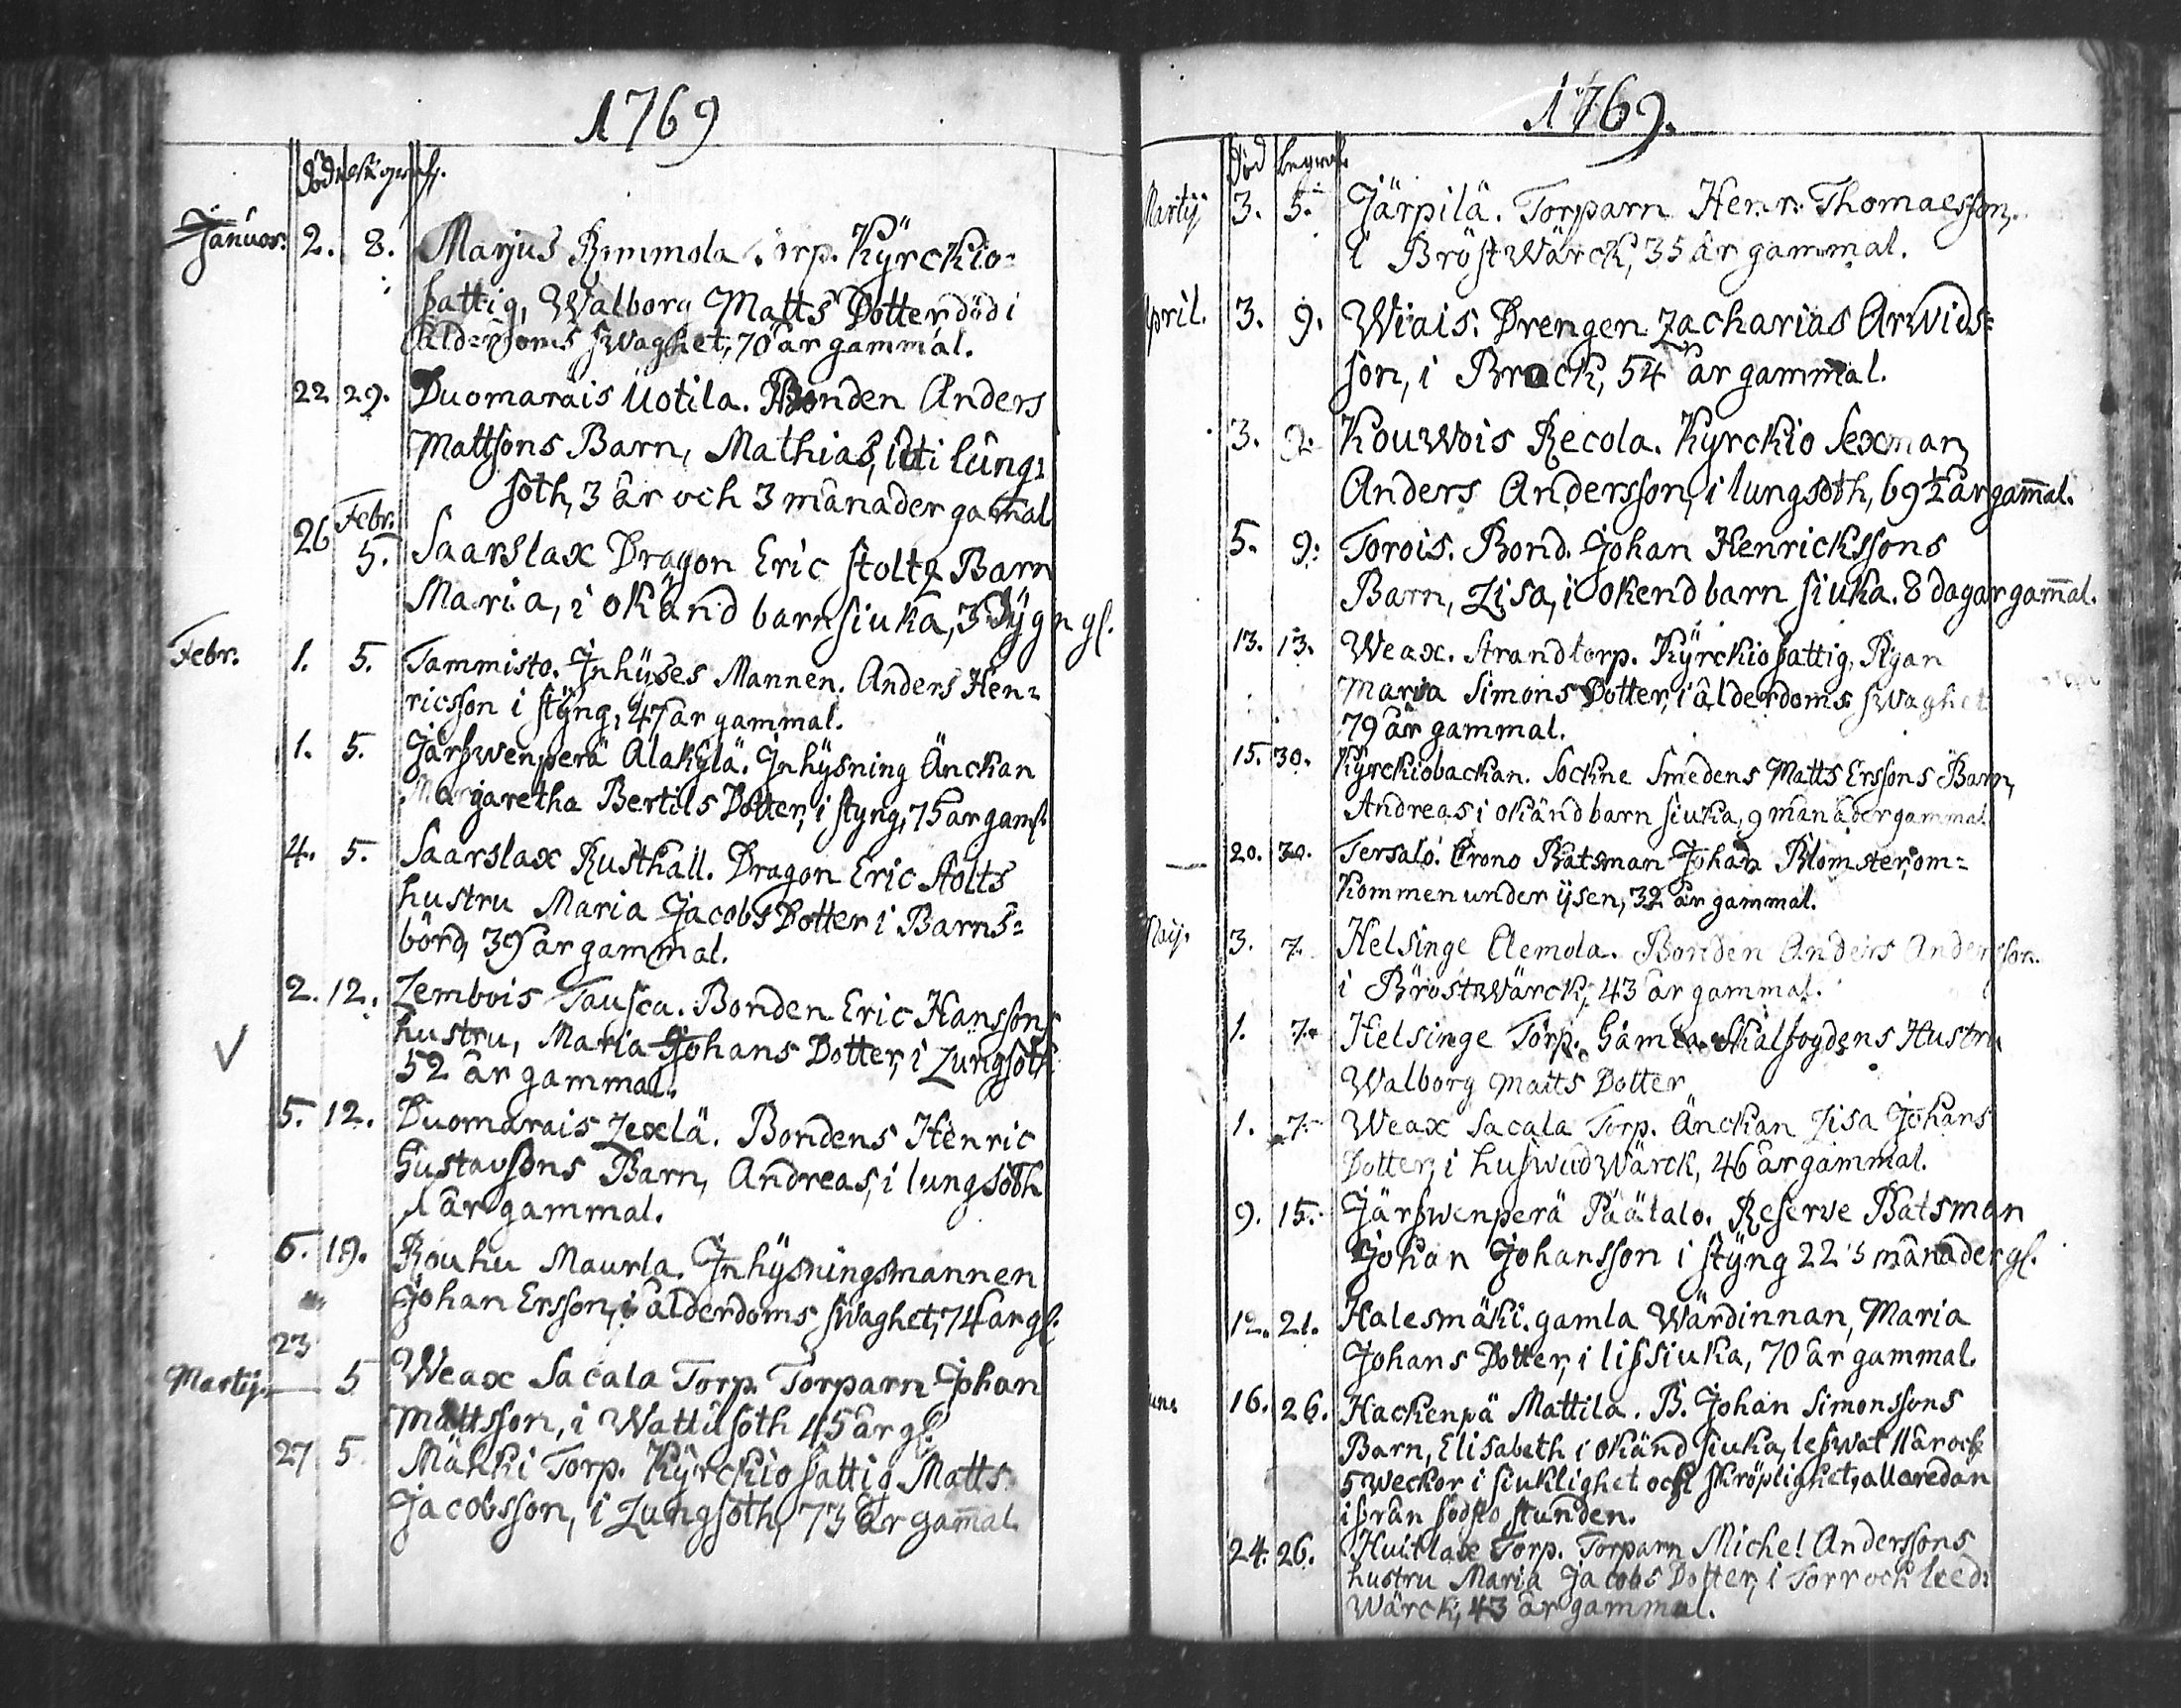 1769
död begraf.
Januar. 2. 8. Marjus Rimmola Torp. Kÿrckio-
fattig, Walborg Matts Dotter, död i
ålderdoms swaghet, 70 år gammal.
22 29. Duomarais Uotila. Bonden Anders
Mattsons Barn, Mathias, i lung-
soth, 3 år och 3 månader gamal
26 Febr. 5. Saarslax Dragon Eric Stoltz Barn
Maria, i okänd barnsiuka, 3 dÿgn gl.
Febr. 1. 5. Tammisto. Inhÿses Mannen. Anders Hen-
ricsson i stÿng, 47 år gammal.
1. 5. Järfwenperä Alakÿlä. Inhÿsning Änckan
Margaretha Bertils Dotter, i styng, 75 år gaml.
4. 5. Saarslax Rusthåll. Dragon Eric Stolts
hustru Maria Jacobs Dotter i Barns-
börd, 39 år gammal.
2. 12. Lembois Tausca. Bonden Eric Hanssons
hustru, Maria Johans Dotter, i Lungsoth
52 år gammal.
5. 12. Duomarais Lexlä. Bondens Henric
Gustavsons Barn, Andreas, i lungsoth
1 år gammal.
6. 19. Rouhu Maurla. Inhÿsningsmannen
Johan Ersson, i ålderdoms swaghet, 74 år gl.
23
Martij. 5 Weax Sacala Torp. Torparn Johan
Mattsson, i Wattusoth 45 år gl.
27 5 Mähki Torp. Kÿrckio fattig Matts
Jacobsson, i Lungsoth, 73 år gam̅al.
1769.
Död begraf.
Martij 3. 5. Järpilä. Torparn Henr. Thomaesson,
i BröstWärck, 35 år gammal.
April. 3. 9. Wiais. Drengen Zacharias Arwids-
son, i Bråck, 54 år gammal.
3. 9. Kouwois Recola. Kyrckio Sexman,
Anders Andersson, i lungsoth, 69 1/2 år gam̅al.
5. 9. Torois. Bond. Johan Henrickssons
Barn, Lisa, i okend barn siuka. 8 dagar gam̅al.
13. 13. Weax. Strandtorp. Kÿrckio fattig, Pigan
Maria Simons Dotter, i ålderdoms swaghet
79 år gammal.
15. 30. Kÿrckiobackan. Sockne Smedens Matts Erssons Barn,
Andreas i okänd barn siuka, 9 månader gammal
20. 30. Tersalo. Crono Båtsman Johan Blomster, om-
kommen under ÿsen, 32 år gammal.
Maij. 3. 7. Helsinge Clemola. Bonden Anders Andersson.
i BröstWärck, 43 år gammal.
1. 7. Helsinge Torp. Gamla Skalfogdens Hustru
Walborg Matts Dotter
1. 7. Weax Sacala Torp. Änckan Lisa Johans
Dotter, i hufwudWärck, 46 år gammal.
9. 15. Järfwenperä Päätalo. Reserve Båtsman
Johan Johansson i stÿng 22 3 månader gl.
12. 21. Halesmäki. gamla Wärdinnan, Maria
Johans Dotter, i lifsiuka, 70 år gammal.
16. 26. Hackenpä Mattila. B. Johan Simonssons
Barn, Elisabeth i okänd siuka, lefwat 11 år och
5 weckor i siuklighet och skröplighet, allaredan
ifrån födslo stunden.
24. 26. Huitlax Torp. Torparn Michel Anderssons
hustru Maria Jacobs Dotter, i Torr och leed-
Wärck, 43 år gammal.